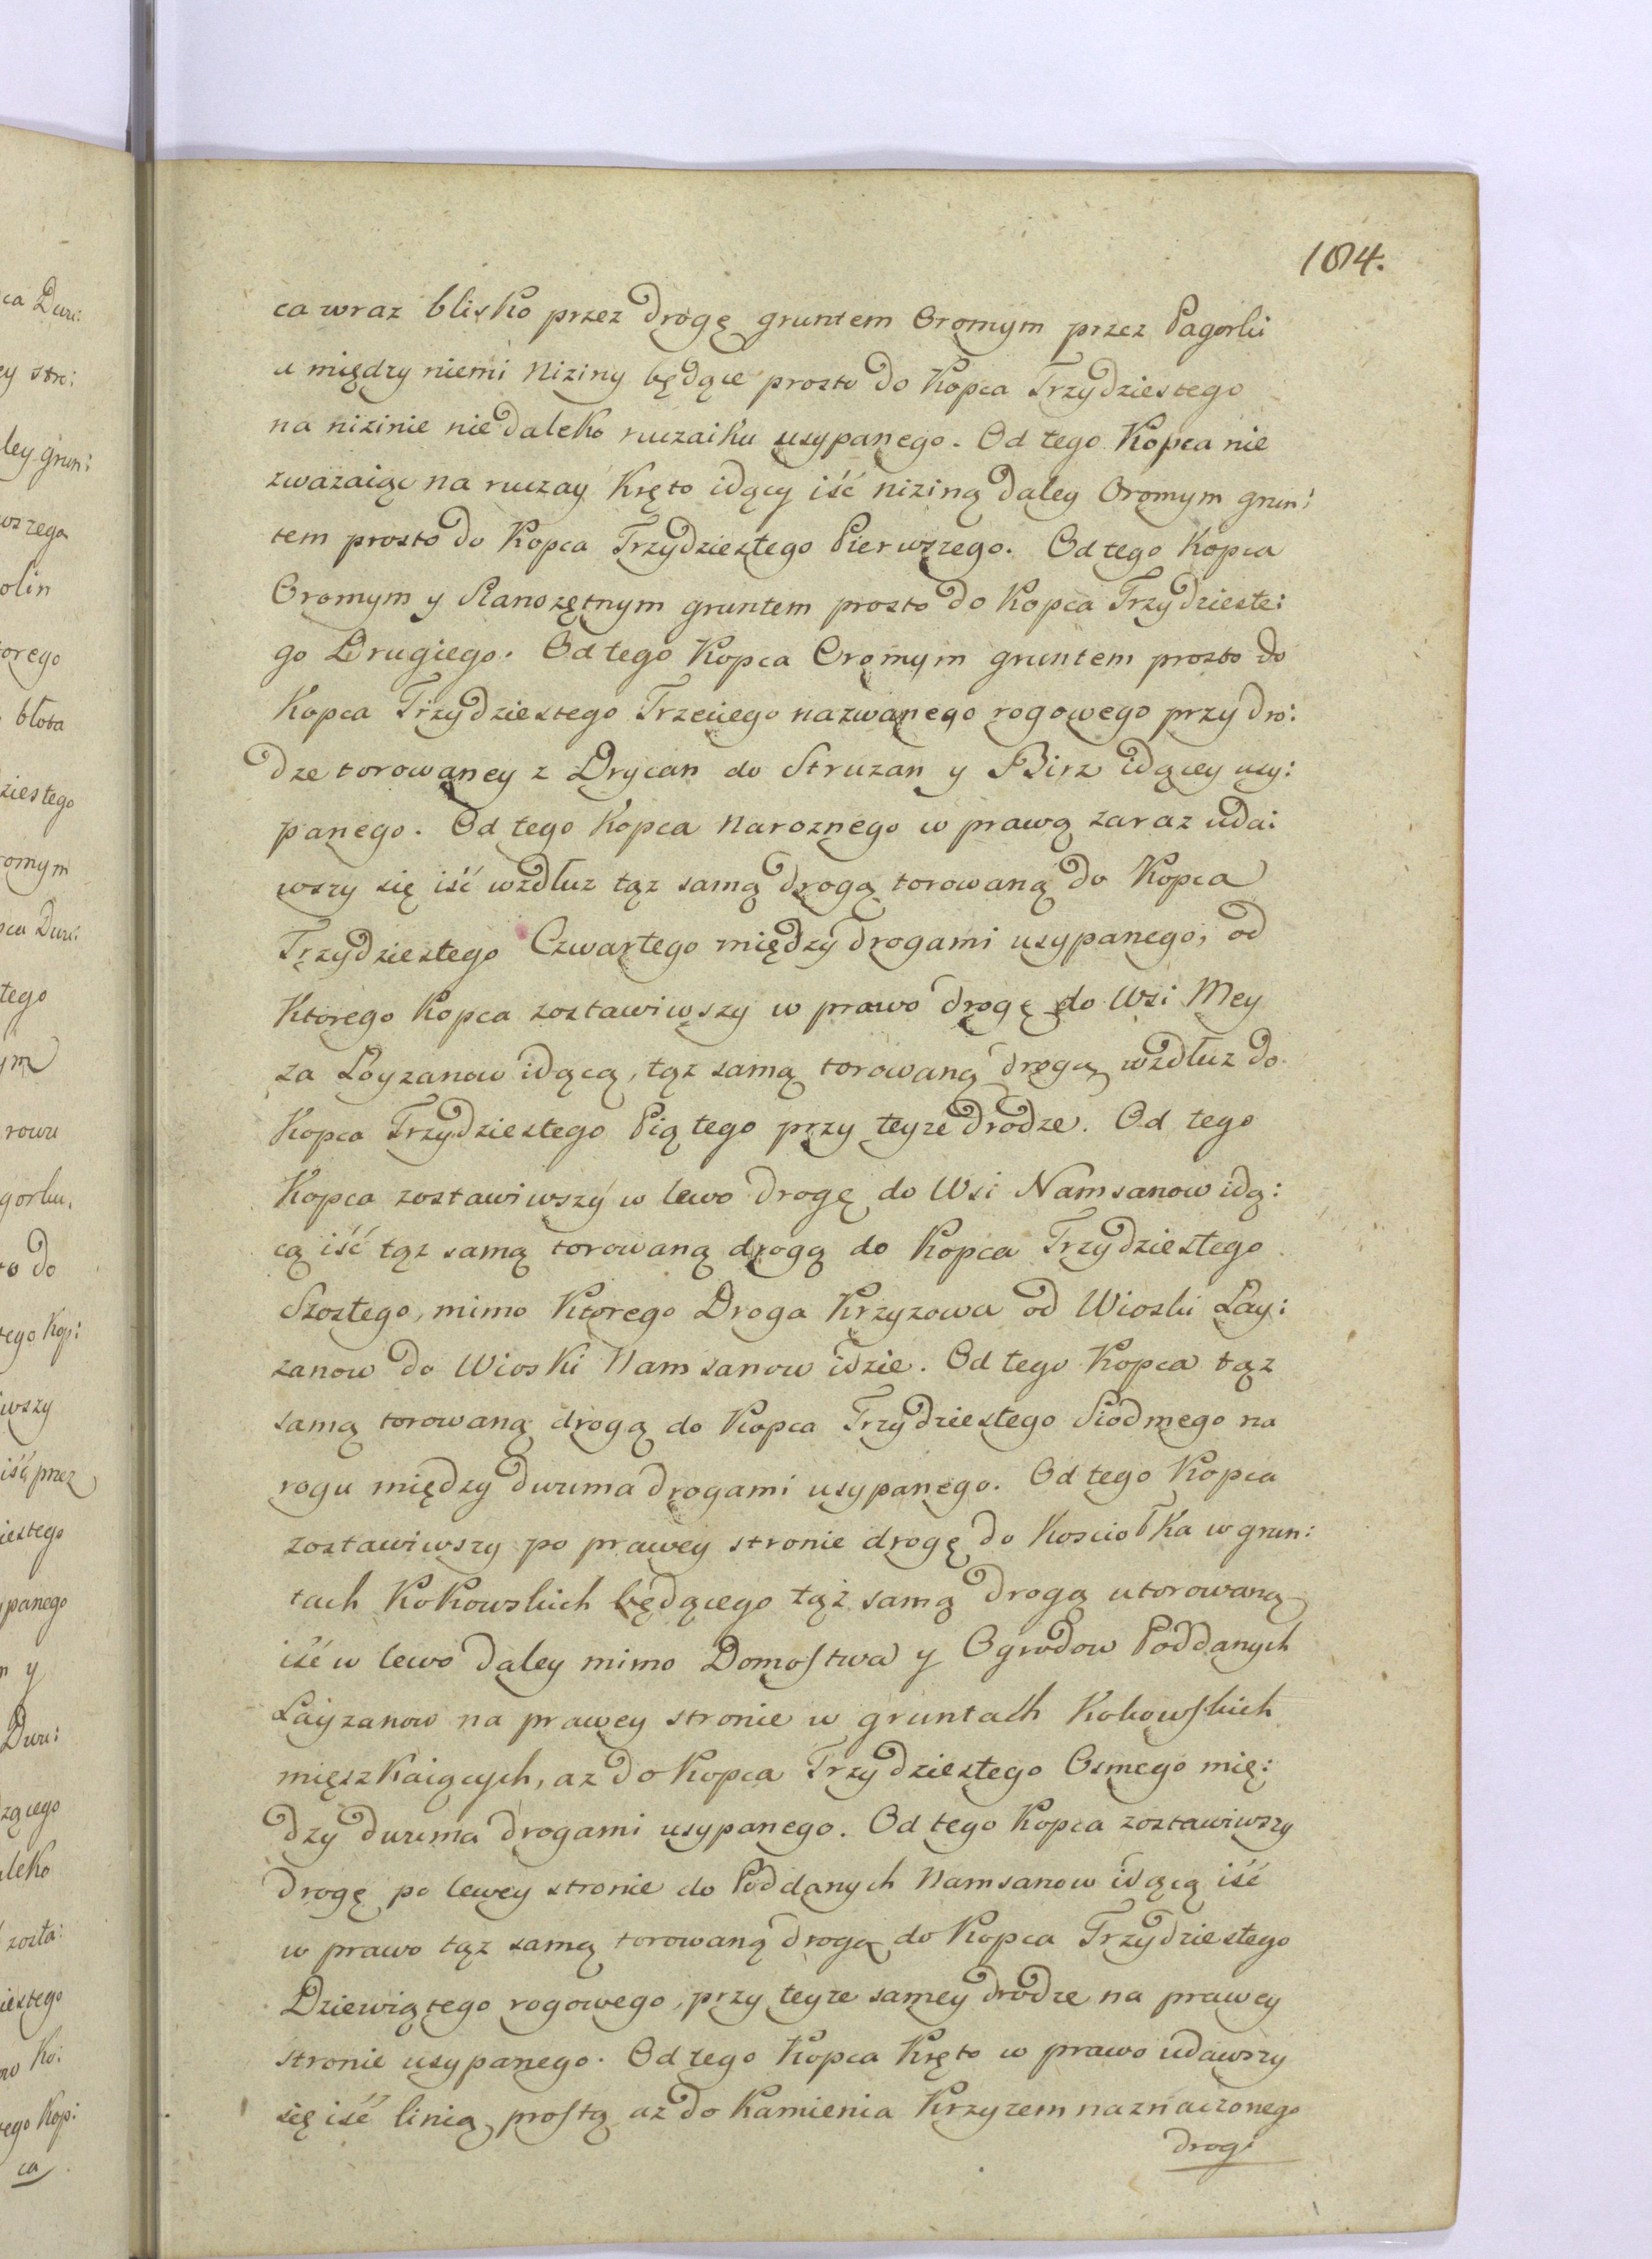 104.
ca wraz blisko przez drogę gruntem Oromym przez Pagorki
u między niemi Niziny będące prosto do Kopca Trzydziestego
na nizinie niedaleko ruczaiku usypanego. Od tego Kopca nie
zwazaiąc na ruczay kręto idący iść niziną daley Oromym grun:
tem prosto do Kopca Trzydziestego Pierwszego. Od tego Kopca
Oromym y Sianozętnym gruntem prosto do Kopca Trzydzieste:
go Drugiego. Od tego Kopca Oromym gruntem prosto do
Kopca Trzydziestego Trzeciego nazwanego rogowego przy dro:
dze torowaney z Drycan do Struzan y Birz idącey usy:
panego. Od tego Kopca Naroznego w prawą zaraz uda:
wszy się iść wzdłuz tąz samą drogą torowaną do Kopca
Trzydziestego Czwartego między drogami usypanego, od
Ktorego Kopca zostawiwszy w prawo drogę do Wsi Mey
za Loyzanow idącą, tąz samą torowaną drogą wzdłuz do
Kopca Trzydziestego Piątego przy teyze drodze. Od tego
Kopca zostawiwszy w lewo drogę do Wsi Namsanow idą:
cą iść tąz samą torowaną drogą do Kopca Trzydziestego
Szostego, mimo Ktorego Droga Krzyzowa od Wioski Lay:
zanow do Wioski Namsanow idzie. Od tego Kopca tąz
samą torowaną drogą do Kopca Trzydziestego Siodmego na
rogu między dwuma drogami usypanego. Od tego Kopca
zostawiwszy po prawey stronie drogę do Kosciołka w grun:
tach Kokowskich będącego tąż samą drogą utorowaną
iść w lewo daley mimo Domostwa y Ogrodow Poddanych
Layzanow na prawey stronie w gruntach Kokowskich
mięszkaiących, az do Kopca Trzydziestego Osmego mię:
dzy dwuma drogami usypanego. Od tego Kopca zostawiwszy
drogę po lewey stronie do Poddanych Namsanow idącą iść
w prawo tąz samą torowaną drogą do Kopca Trzydziestego
Dziewiątego rogowego, przy teyze samey drodze na prawey
stronie usypanego. Od tego Kopca kręto w prawo udawszy
się iść linią prostą az do Kamienia Krzyzem naznaczonego
drogi